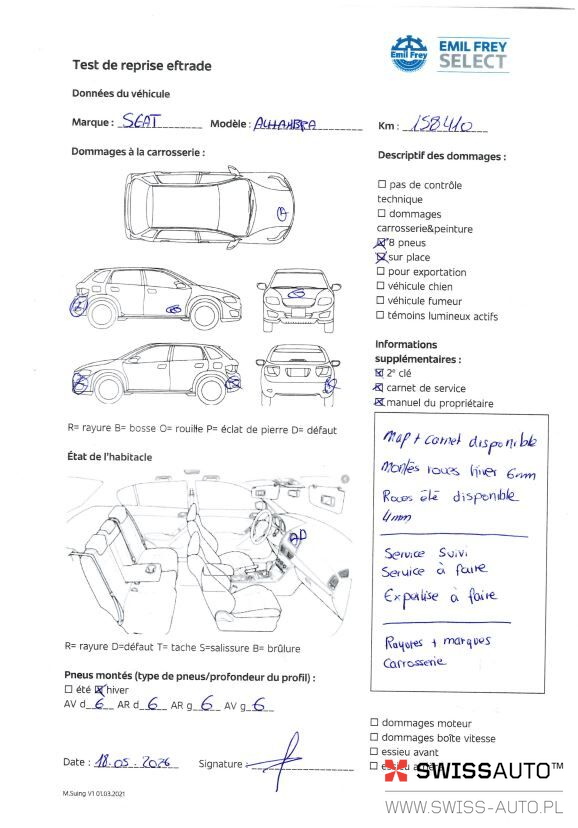 EMIL FREY
SELECT
Emil Frey
Test de reprise eftrade
Données du véhicule
Marque : SEAT Modèle : ALHAMBRA Km : 158410
Dommages à la carrosserie :
Descriptif des dommages :
pas de contrôle
technique
dommages
carrosserie&peinture
8 pneus
sur place
pour exportation
véhicule chien
véhicule fumeur
témoins lumineux actifs
Informations
supplémentaires :
2e clé
carnet de service
manuel du propriétaire
R= rayure B= bosse O= rouille P= éclat de pierre D= défaut
État de l'habitacle
Map + carnet disponible
Montés roues hiver 6mm
Roues été disponible
4mm
Service suivi
Service à faire
Expertise à faire
Rayures + marques
Carrosserie
R= rayure D=défaut T= tache S=salissure B= brûlure
Pneus montés (type de pneus/profondeur du profil) :
été hiver
AV d 6 AR d 6 AR g 6 AV g 6
dommages moteur
dommages boîte vitesse
essieu avant
Date : 18.05.2026 Signature :
M.Suing V1 01.03.2021
SWISSAUTO™
WWW.SWISS-AUTO.PL